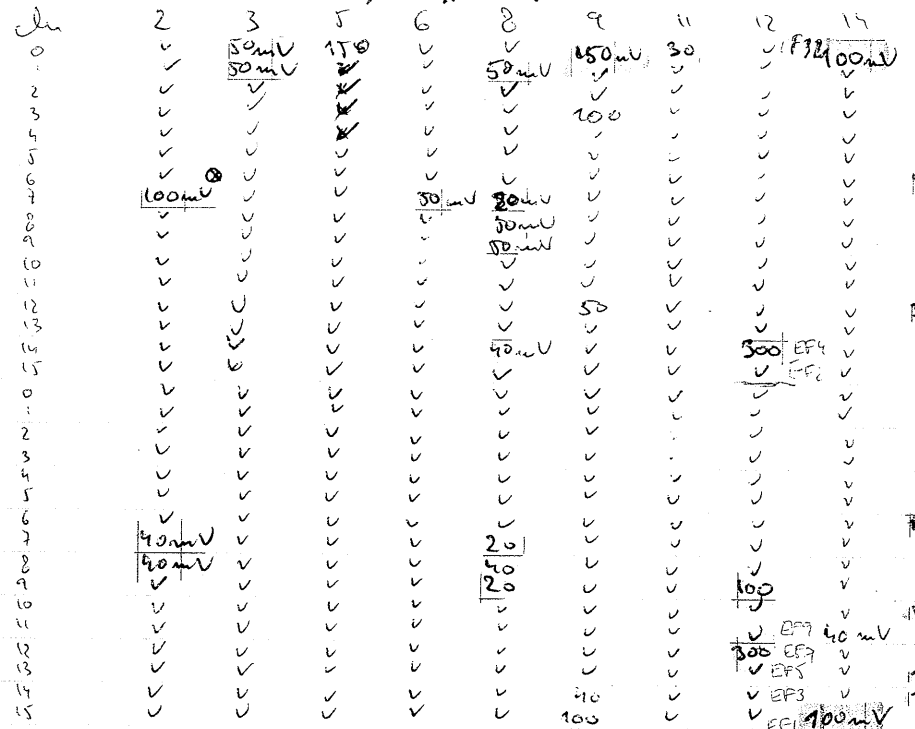 ch 2 3 5 6 8 9 11 12 14
0 ✓ 50mV 150 ✓ ✓ 150mV 30 ✓ F32 100mV
1 ✓ 50mV ✓ ✓ 50mV ✓ ✓ ✓ ✓
2 ✓ ✓ ✓ ✓ ✓ ✓ ✓ ✓ ✓
3 ✓ ✓ ✓ ✓ ✓ 100 ✓ ✓ ✓
4 ✓ ✓ ✓ ✓ ✓ ✓ ✓ ✓ ✓
5 ✓ ✓ ✓ ✓ ✓ ✓ ✓ ✓ ✓
6 ✓ ✓ ✓ ✓ ✓ ✓ ✓ ✓ ✓
7 100mV ⊗ ✓ ✓ 50mV mV ✓ ✓ ✓ ✓
8 ✓ ✓ ✓ ✓ 50mV ✓ ✓ ✓ ✓
9 ✓ ✓ ✓ ✓ 50mV ✓ ✓ ✓ ✓
10 ✓ ✓ ✓ ✓ ✓ ✓ ✓ ✓ ✓
11 ✓ ✓ ✓ ✓ ✓ ✓ ✓ ✓ ✓
12 ✓ ✓ ✓ ✓ ✓ 50 ✓ ✓ ✓
13 ✓ ✓ ✓ ✓ ✓ ✓ ✓ ✓ ✓
14 ✓ ✓ ✓ ✓ 40mV ✓ ✓ 300 EF4 ✓
15 ✓ ✓ ✓ ✓ ✓ ✓ ✓ ✓ EF2 ✓
0 ✓ ✓ ✓ ✓ ✓ ✓ ✓ ✓ ✓
1 ✓ ✓ ✓ ✓ ✓ ✓ ✓ ✓ ✓
2 ✓ ✓ ✓ ✓ ✓ ✓ ✓ ✓ ✓
3 ✓ ✓ ✓ ✓ ✓ ✓ ✓ ✓ ✓
4 ✓ ✓ ✓ ✓ ✓ ✓ ✓ ✓ ✓
5 ✓ ✓ ✓ ✓ ✓ ✓ ✓ ✓ ✓
6 ✓ ✓ ✓ ✓ ✓ ✓ ✓ ✓ ✓
7 40mV ✓ ✓ ✓ 20 ✓ ✓ ✓ ✓
8 40mV ✓ ✓ ✓ 40 ✓ ✓ ✓ ✓
9 ✓ ✓ ✓ ✓ 20 ✓ ✓ 100 ✓
10 ✓ ✓ ✓ ✓ ✓ ✓ ✓ ✓ ✓
11 ✓ ✓ ✓ ✓ ✓ ✓ ✓ ✓ EF9 40mV
12 ✓ ✓ ✓ ✓ ✓ ✓ ✓ 300 EF7 ✓
13 ✓ ✓ ✓ ✓ ✓ ✓ ✓ ✓ EF5 ✓
14 ✓ ✓ ✓ ✓ ✓ 40 ✓ ✓ EF3 ✓
15 ✓ ✓ ✓ ✓ ✓ 100 ✓ ✓ EF1 100mV